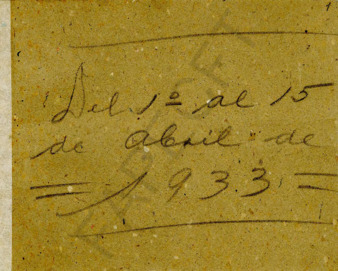 Del 1º al 15
de abril de
= 1933 =